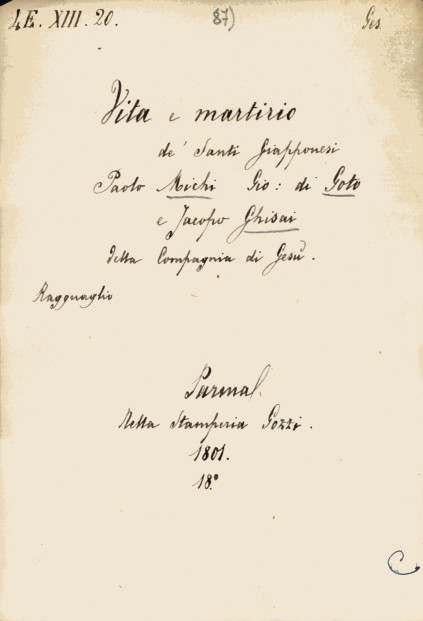 4E. XIII. 20. 87) Ges.
Vita e martirio
de' Santi Giapponesi
Paolo Michi Gio: di Goto
e Jacopo Ghisai
della Compagnia di Gesù.
Ragguaglio
Parma.
Nella Stamperia Gozzi.
1801.
18°
C